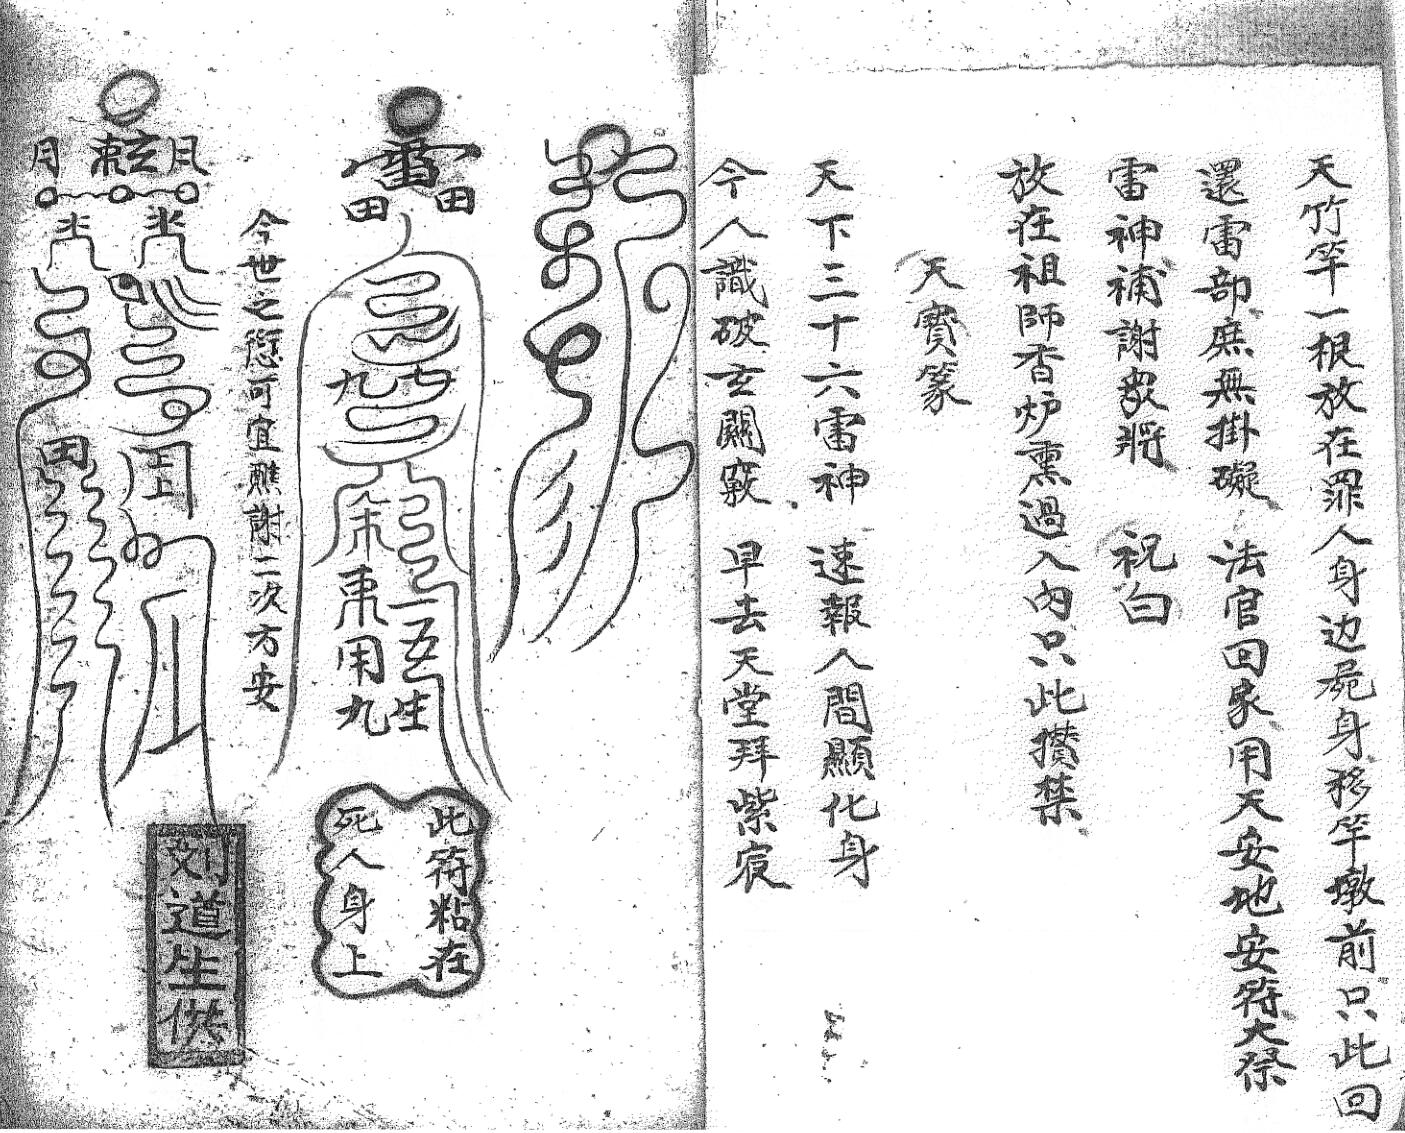 天竹竿一根放在罪人身边屍身移竿墩前只此回
還雷部庶無掛礙　法官回家用天安地安符大祭
雷神補謝衆將　祝白
放在祖師香炉熏過入內只此攢禁
天寶篆
天下三十六雷神　速報人間顯化身
今人識破玄關竅　早去天堂拜紫宸
雷
田 田
九
東用九
一五生
此符粘在
死人身上
今世之愆可宜醮謝二次方安
月 玄 月
田
刘道生供